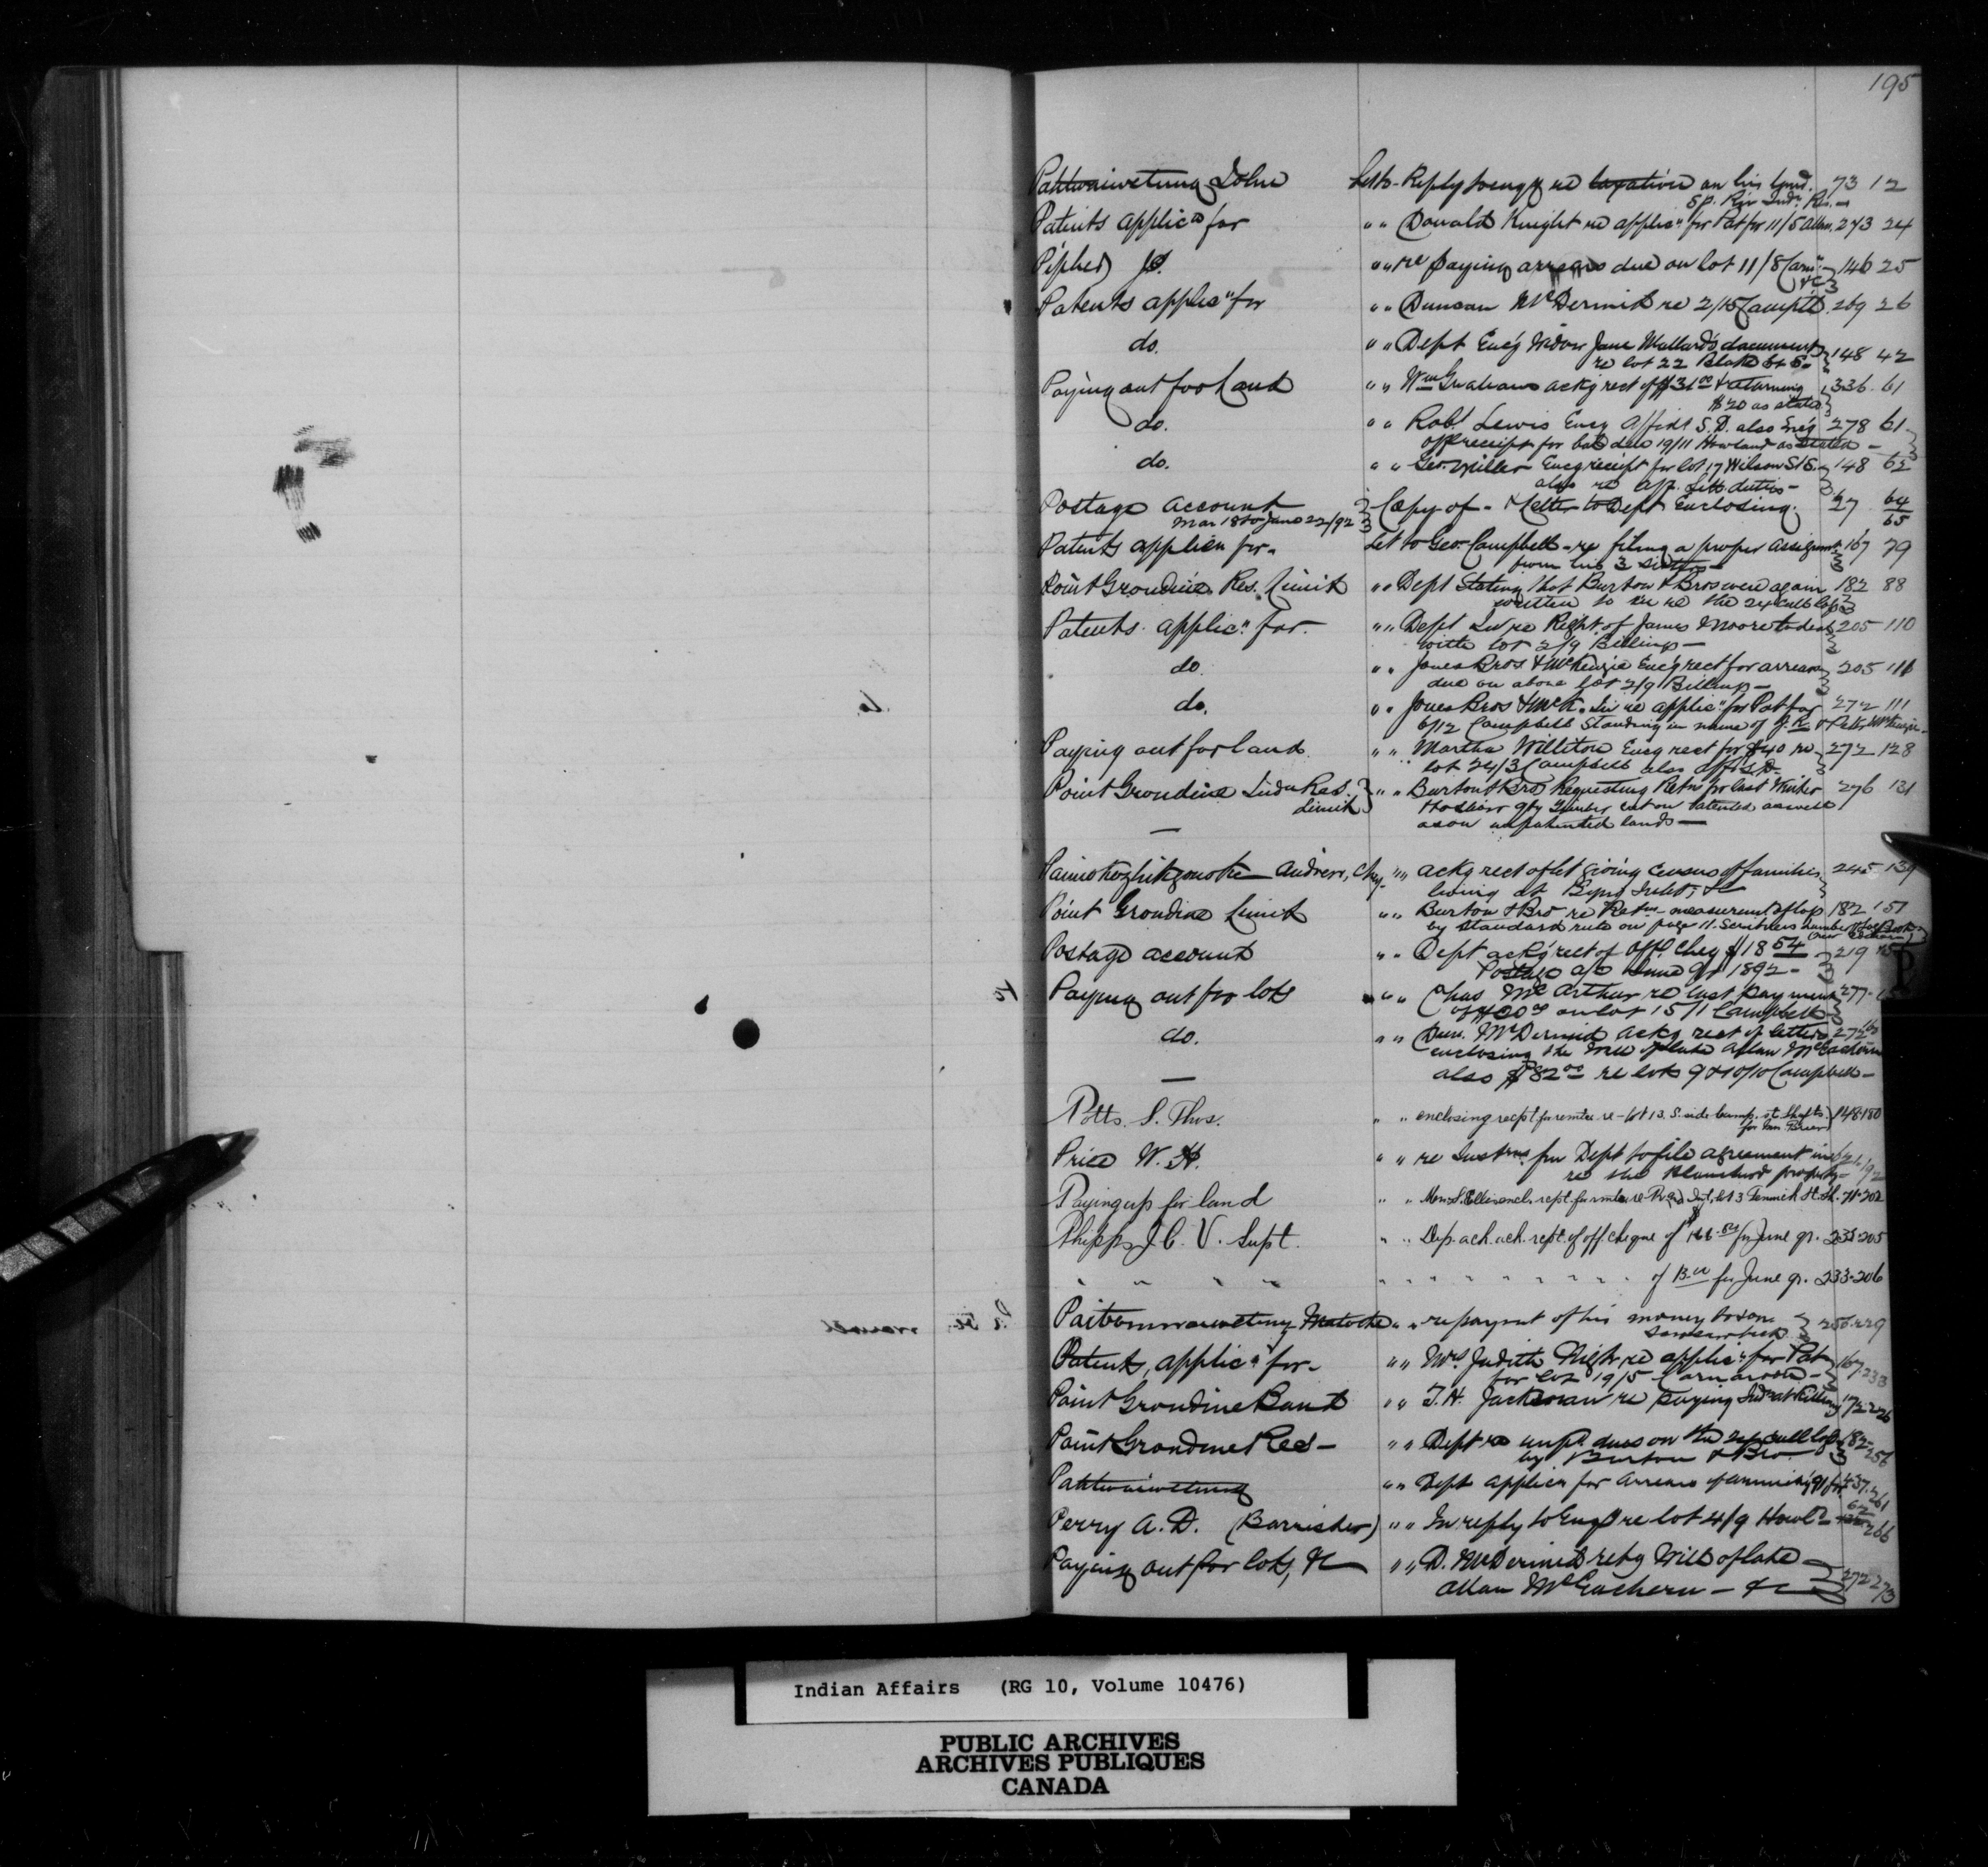 195
Pahtwaiwetung John Let to - Reply to enqy re taxation on his land. 73 12
Sp. Riv Indn Res. -
Patents applicn for " " Donald Knight re applicn for Pat for 11/5 Allan. 273 24
" " re paying arrears due on lot 11/8 Carnn 146 25
&c
Patents applicn for " " Duncan McDermid re 2/15 Campbell. 269 26
do. " " Dept Enc'g Widow Jane Mallard's documents 148 42
re lot 22 Blake St S.
Paying out for Land " " Wm Graham ackg rect of $31.00 & returning 336. 61
$20 as stated
do. " " Robt Lewis Encg Affidt S.D. also Enc'g 278 61
off receipt for bal due 19/11 Howland as stated -
do. " " Geo. Miller Encg receipt for lot 17 Wilson St S. 148 62
also re aff. Sett. duties -
Postage account Copy of - & letter to Dept Enclosing. 27 64
Mar 18 to June 22/92 65
Patents applicn for - Let to Geo. Campbell - re filing a proper assignmt 167 79
from his 3 sisters
Point Grondine Res. Limit " " Dept Stating that Burton & Bros were again 182 88
written to in re the 24 cull logs
Patents applicn for. " " Dept In re Right of James Moore to deal 205 110
with lot 2/9 Billings -
do " " Jones Bros & McKenzie Enc'g rect for arrears 205 111
due on above lot 2/9 Billings -
do. " " Jones Bros & McK. In re applicn for Pat for 272 111
6/12 Campbell Standing in name of J.R. & Peter McKenzie -
Paying out for land " " Martha Williton Encg rect for $40 re 272 128
lot 24/3 Campbell also aff S.D.
Point Grondine Indn Res. " " Burton & Bro Requesting Retn for last Winter 276 131
Limit Timber cut on Patented as well
as on unpatented lands -
Andrew, Chf. " " ackg rect of let giving Census of families 245 139
living at Byng Inlet, &c
Point Grondine Limit " " Burton & Bro re Retn - measurement of logs 182 151
by standard rule on page 11. Scribners Lumber & Log Book
(new Edition)
Postage account " " Dept ackg rect of Offl Cheq $18 54 219
Postage a/c June qr 1892 -
P
Paying out for lots " " Chas McArthur re last payment 277
on lot 15/11 Campbell
do. " " Dun. McDermid ackg rect of letter 272
enclosing the Will of late Allan McEachern
also $82.00 re lots 9 & 10/10 Campbell -
Potts. S. Thos. " " enclosing recpt for remitce re - lot 13. S. side Camp. st. 148 180
for Mrs
Price W. H. " " re Instrns frm Dept to file agreement in
re the Blanchard property -
Paying up for land " " encl. rept. for remitce re lot 3 Fenwick St. Sh. 71. 202
Phipps J. C. V. Supt. " " Dep. ach. ach. rept. of off. cheque of for June qr. 233. 205
" " " " " " " " " " " " of for June qr. 233. 206
" " re paymt of his money to son
Patents, applicn for - " " Mrs Judith High re applicn for Pat 167 233
for lot 19/5 - Carnarvon -
Point Grondine Band " " T. H. Jackman re paying Indns at Killarny 172. 226
Point Grondine Res - " " Dept re unpd dues on the 24 cull logs 182 - 256
by Burton & Bro.
Pahtwaiwetung " " Dept applicn for arrears of annuity 91 for 437. 261
Perry A. D. (Barrister) " " In reply to Enq re lot 4/9 Howld - 62 266
Paying out for lots, &c " " D. McDermid retg Will of late 272 273
Allan McEachern - &c
Indian Affairs (RG 10, Volume 10476)
PUBLIC ARCHIVES
ARCHIVES PUBLIQUES
CANADA